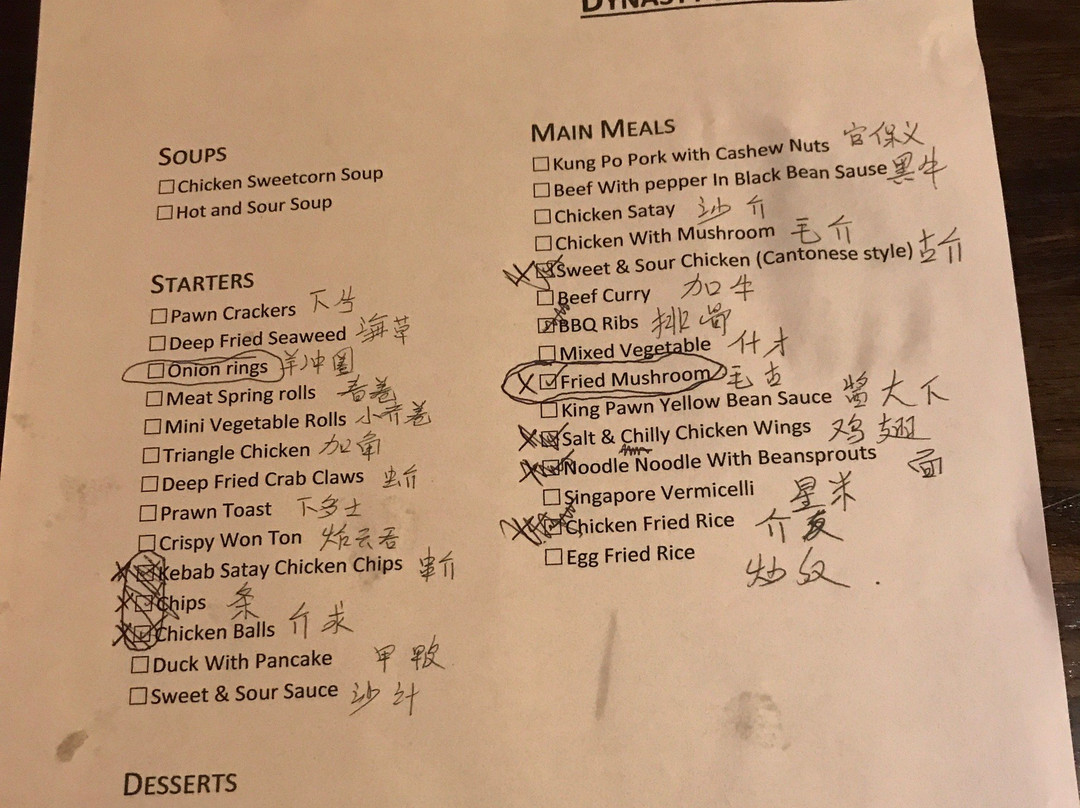 SOUPS
Chicken Sweetcorn Soup
Hot and Sour Soup
STARTERS
Pawn Crackers 下片
Deep Fried Seaweed 海草
Onion rings 羊冲圈
Meat Spring rolls 春卷
Mini Vegetable Rolls 小卷
Triangle Chicken 加角
Deep Fried Crab Claws
Prawn Toast 下多士
Crispy Won Ton 云吞
Kebab Satay Chicken Chips 串介
Chips 条
Chicken Balls 介求
Duck With Pancake 甲
Sweet & Sour Sauce 沙汁
DESSERTS
MAIN MEALS
Kung Po Pork with Cashew Nuts 宫保义
Beef With pepper In Black Bean Sause 黑牛
Chicken Satay 沙介
Chicken With Mushroom 毛介
Sweet & Sour Chicken (Cantonese style) 古介
Beef Curry 加牛
BBQ Ribs 排
Mixed Vegetable 什才
Fried Mushroom 毛古
King Pawn Yellow Bean Sauce 酱大下
Salt & Chilly Chicken Wings 鸡翅
Noodle Noodle With Beansprouts 面
Singapore Vermicelli 星米
Chicken Fried Rice 介
Egg Fried Rice
炒